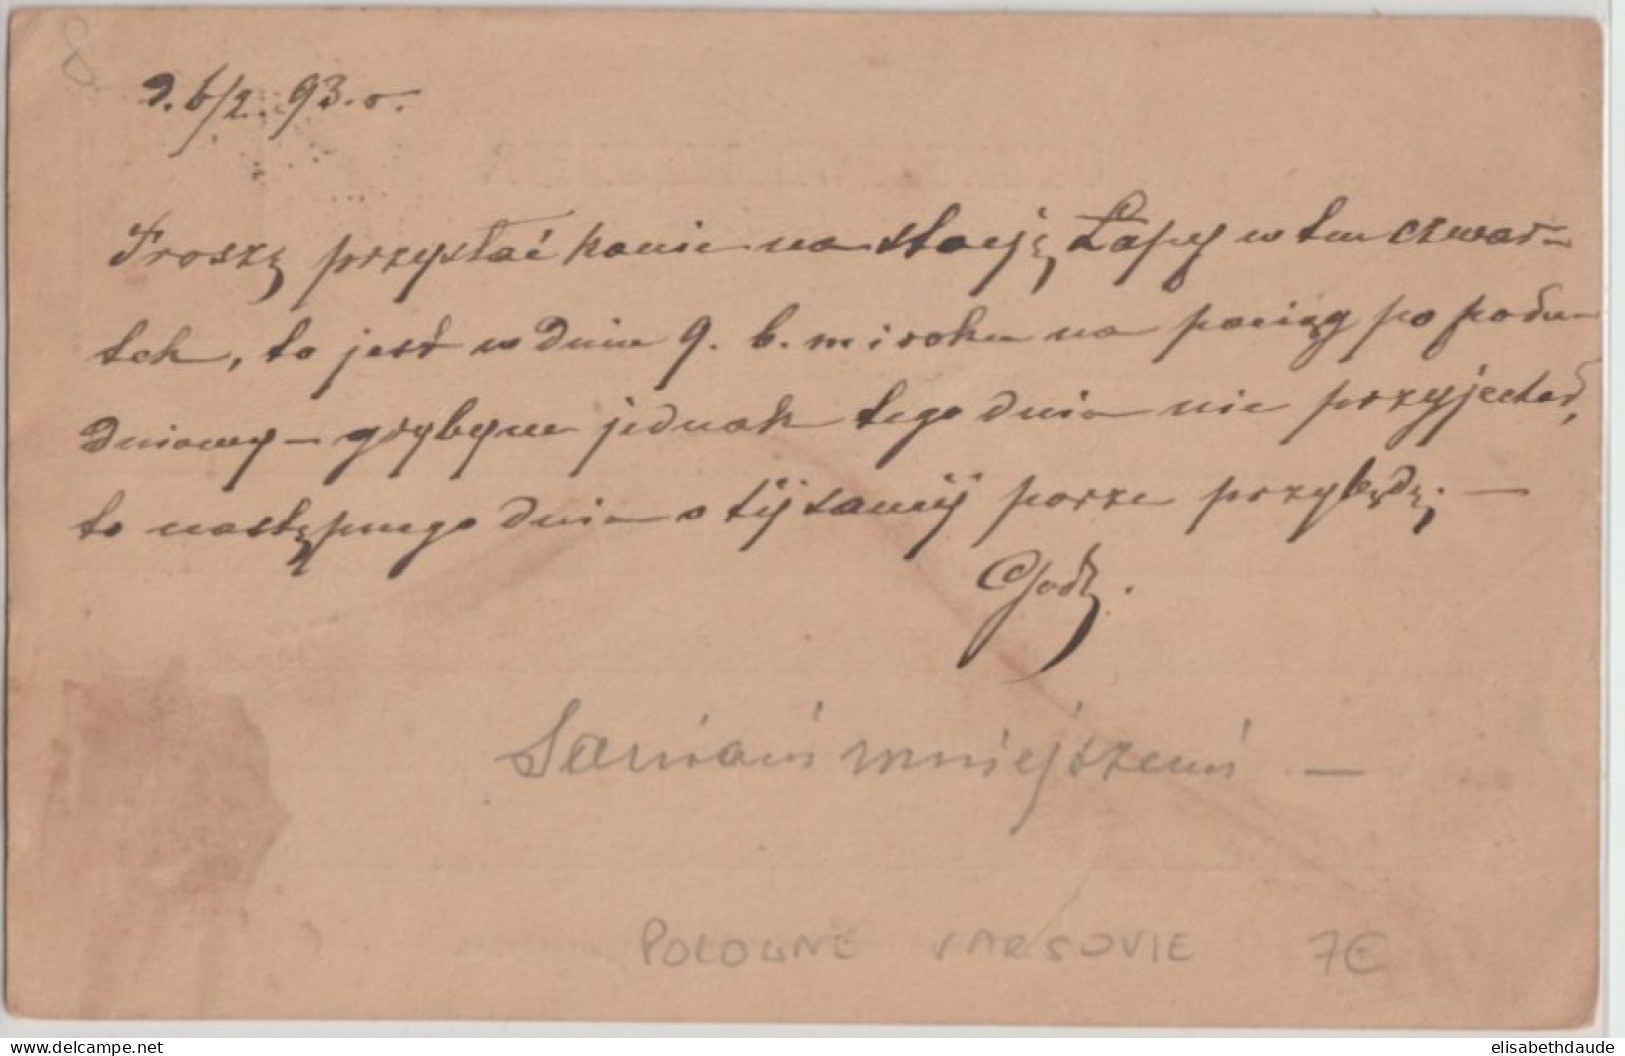 8
d. 6/2. 93. r.
Proszę przysłać konie na stacyę Łapy w ten czwar-
tek, to jest w dniu 9. b. m i roku na pociąg po połu-
dniowy – gdybym jednak tego dnia nie przyjechał,
to następnego dnia o tÿ samÿ porze przybędę. —
Godz.
mniejszemi —
POLOGNE VARSOVIE 7€
delcampe.net
elisabethdaude